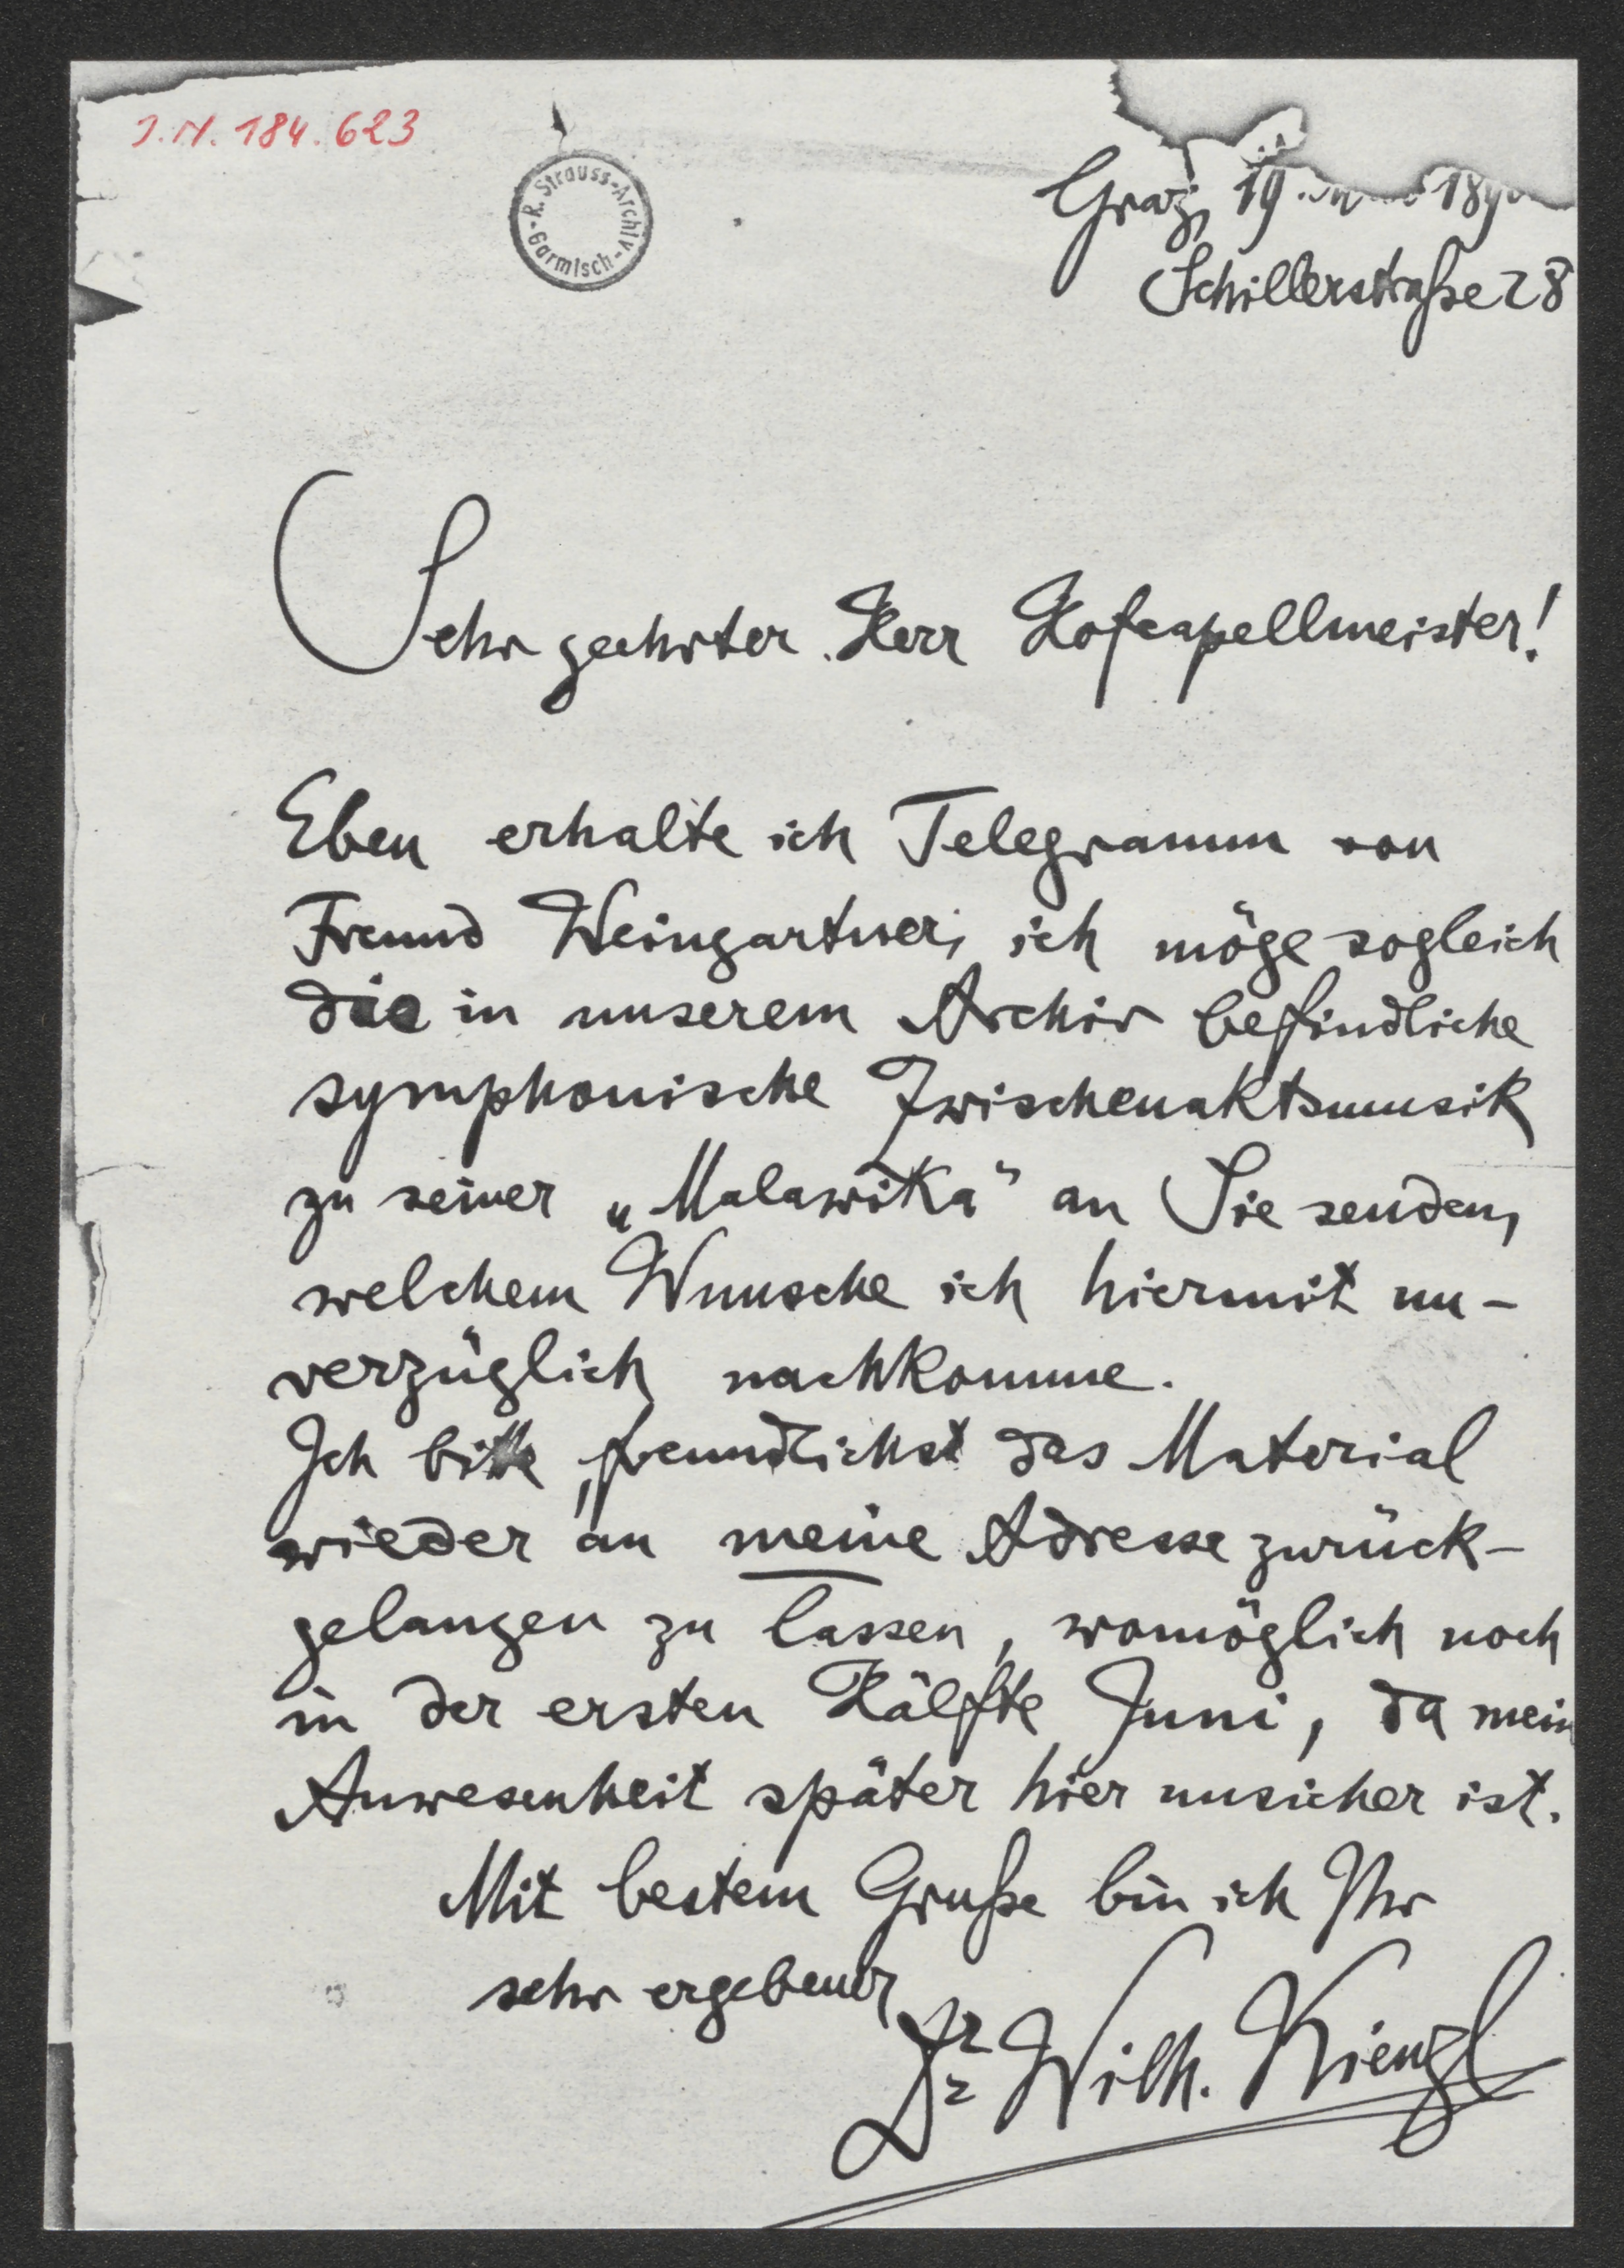 J.N. 184.623
R. Strauss-Archiv-Garmisch-
Graz, 19. 189
Schillerstraße 28
Sehr geehrter Herr Hofcapellmeister!
Eben erhalte ich Telegramm von
Freund Weingartner, ich möge sogleich
die in unserem Archiv befindliche
symphonische Zwischenaktsmusik
zu seiner „Malawika" an Sie senden,
welchem Wunsche ich hiermit un-
verzüglich nachkomme.
Ich bitte, freundlichst das Material
wieder an meine Adresse zurück-
gelangen zu lassen, womöglich noch
in der ersten Hälfte Juni, da mein
Anwesenheit später hier unsicher ist.
Mit bestem Gruße bin ich Ihr
sehr ergebener
Dr Wilh. Kienzl